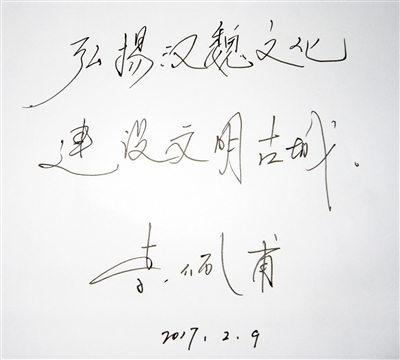 弘揚汉魏文化
建设文明古城。
李佩甫
2017.2.9